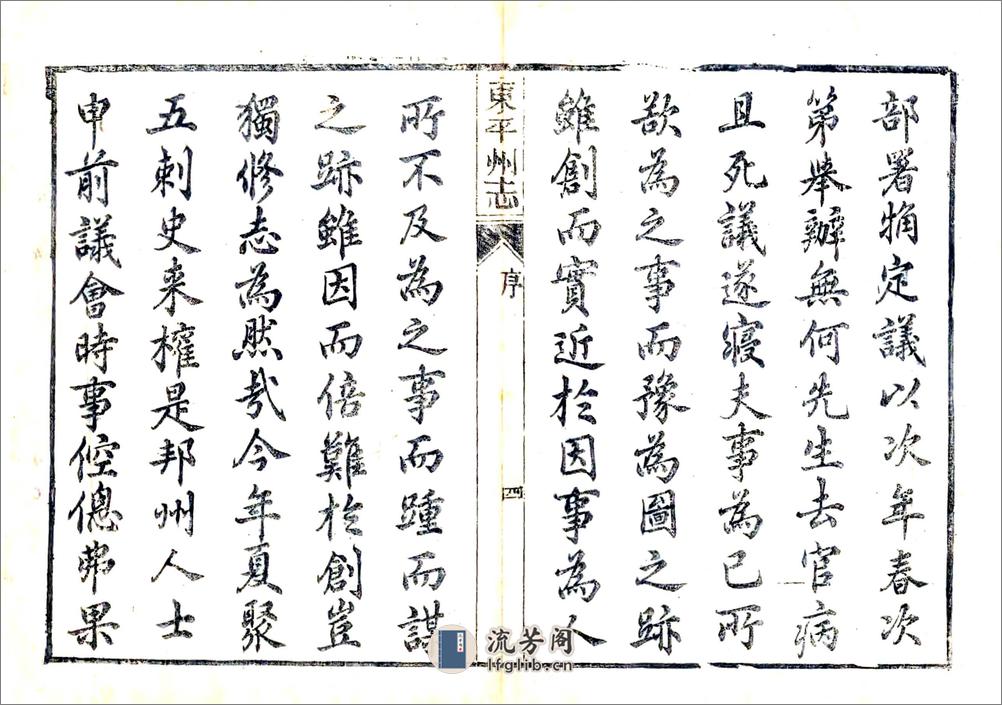 部署粗定議以次年春次
第舉辦無何先生去官病
且死議遂寢夫事為已所
欲為之事而豫為圖之跡
雖創而實近於因事為人
東平州志
序
四
所不及為之事而踵而謀
之跡雖因而倍難於創豈
獨修志為然哉今年夏聚
五刺史来權是邦州人士
申前議會時事倥傯弗果
流芳阁
lfglib.cn